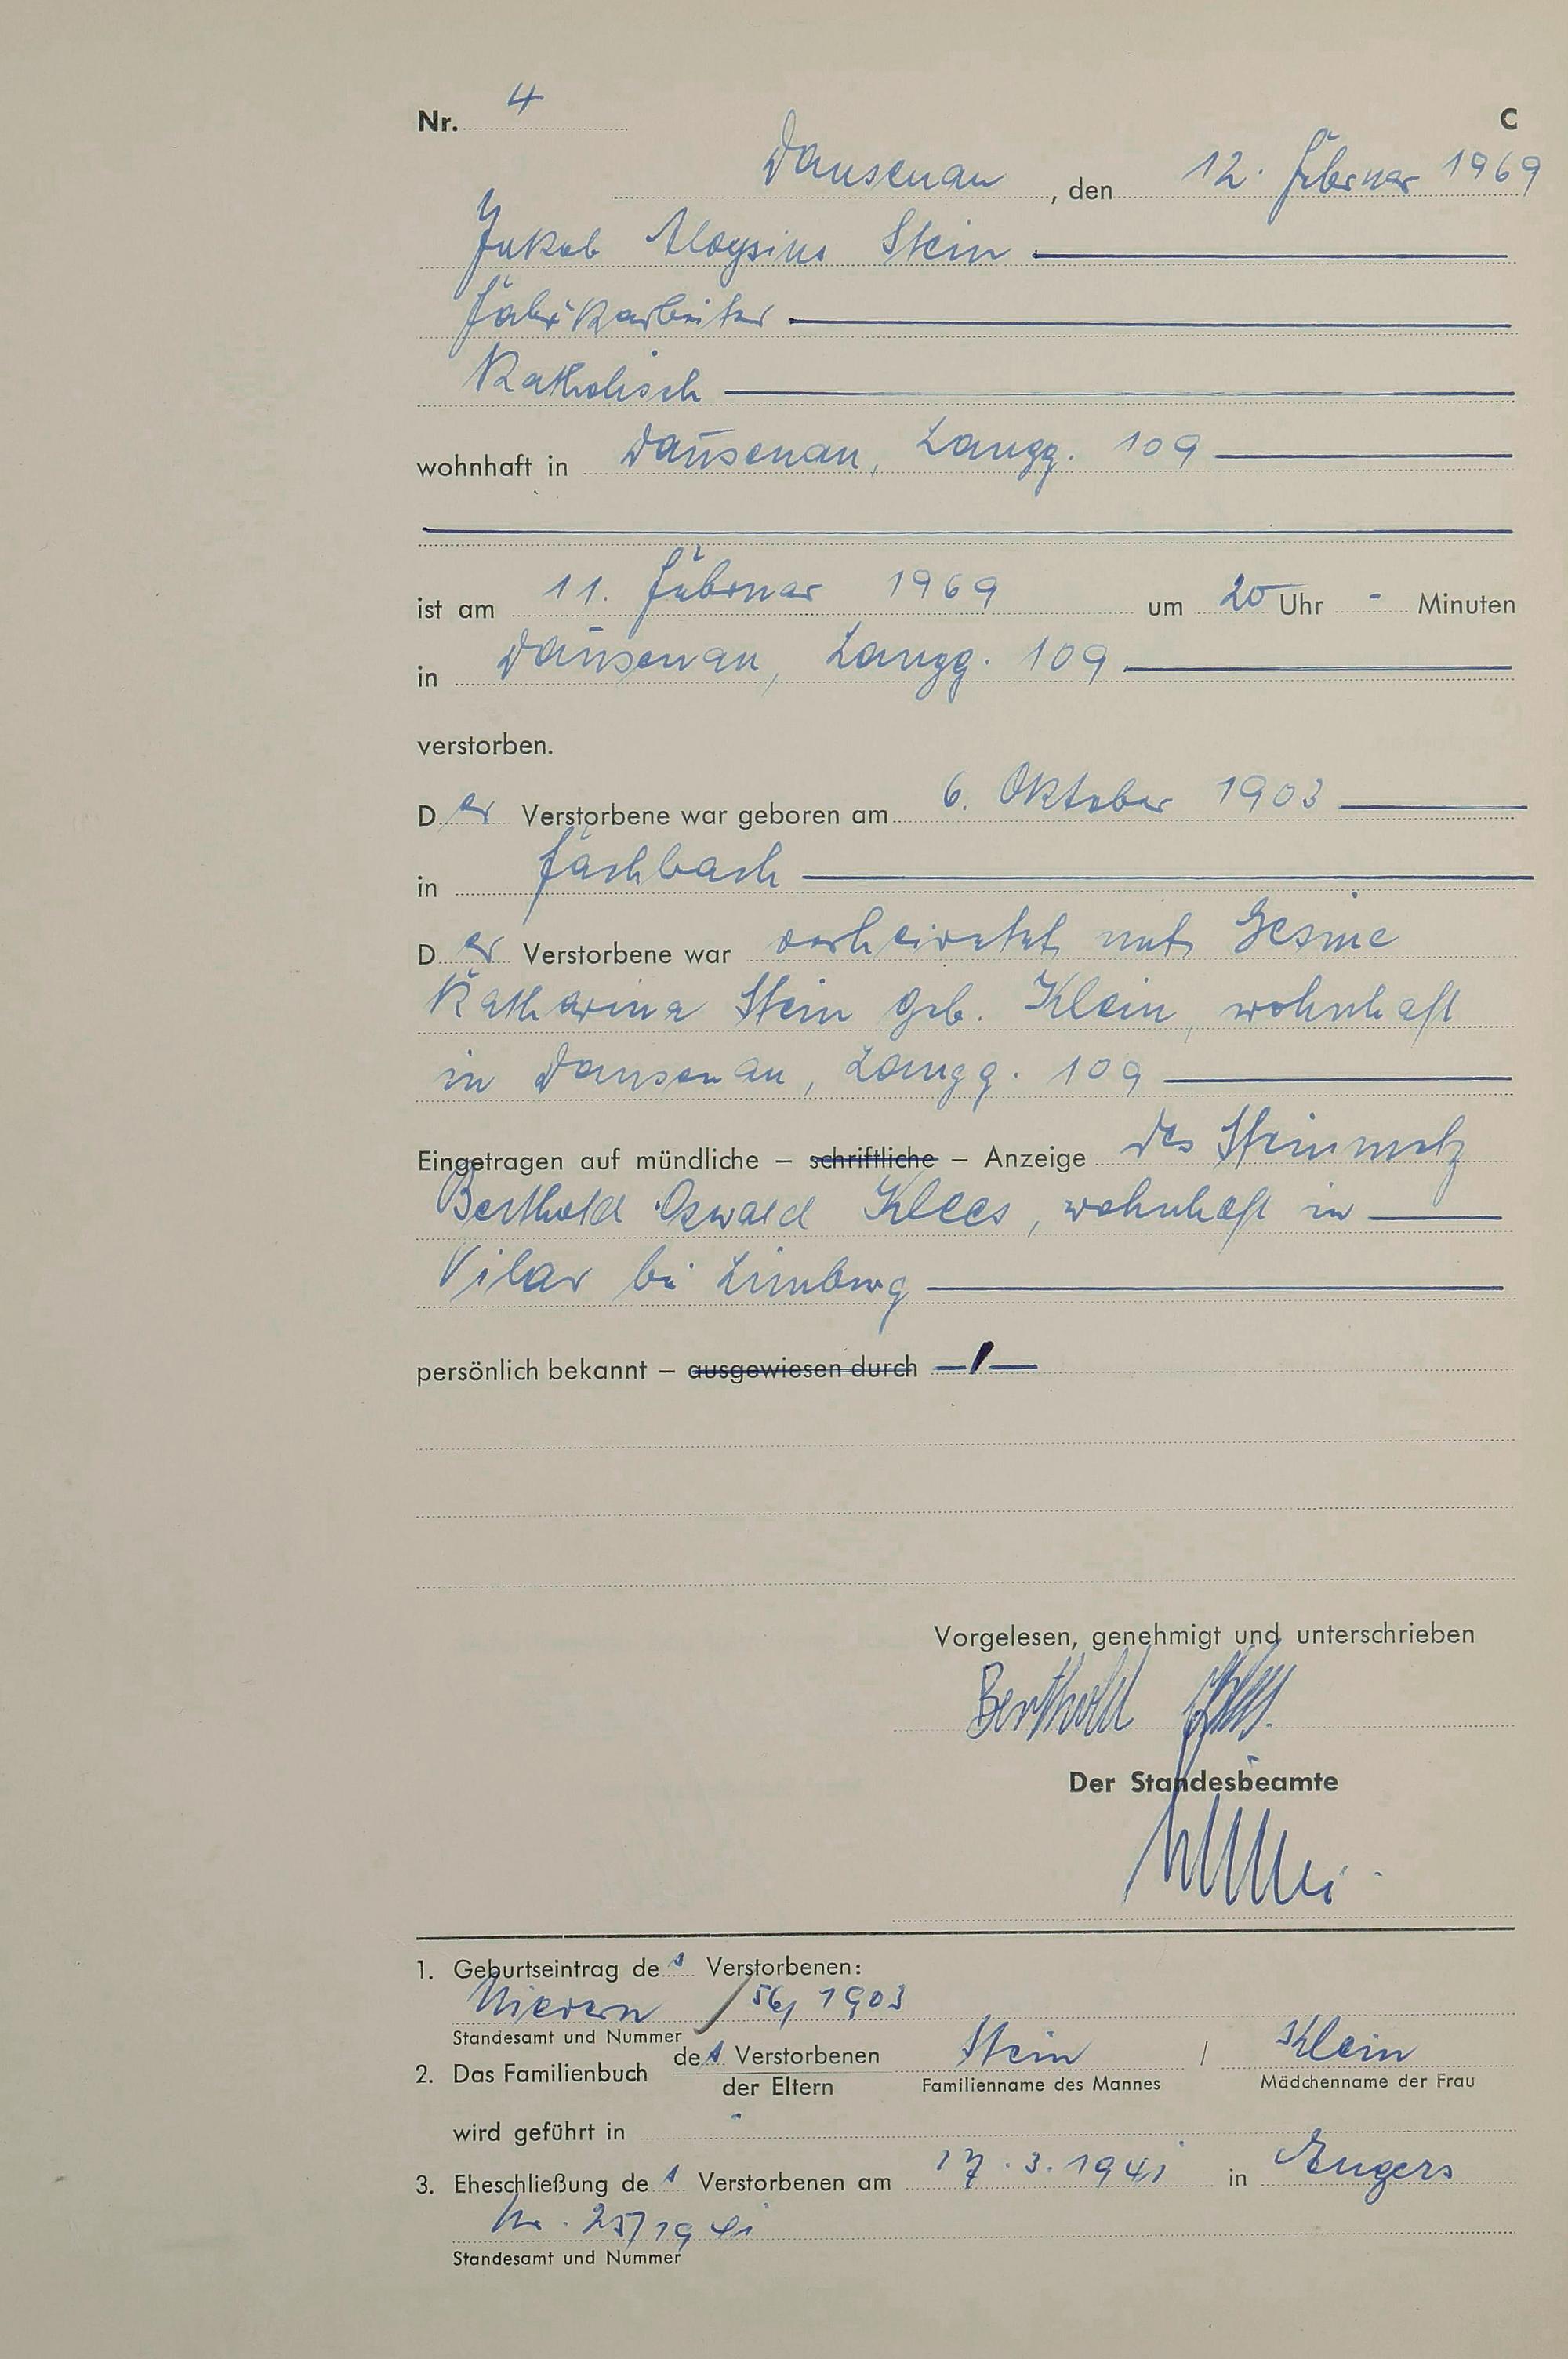 Nr. 4 C
Dausenau, den 12. Februar 1969
Jakob Aloysius Stein
Fabrikarbeiter
Katholisch
wohnhaft in Dausenau, Langg. 109
ist am 11. Februar 1969 um 20 Uhr - Minuten
in Dausenau, Langg. 109
verstorben.
Der Verstorbene war geboren am 6. Oktober 1903
in Fachbach
Der Verstorbene war verheiratet mit Gesine
Katharina Stein geb. Klein, wohnhaft
in Dausenau, Langg. 109
Eingetragen auf mündliche – schriftliche – Anzeige des Steinmetz
Berthold Oswald Klees, wohnhaft in
bei Limburg
persönlich bekannt – ausgewiesen durch
Vorgelesen, genehmigt und unterschrieben
Berthold Klees
Der Standesbeamte
1. Geburtseintrag des Verstorbenen:
Nievern / 56/1903
Standesamt und Nummer
2. Das Familienbuch des Verstorbenen Stein / Klein
der Eltern Familienname des Mannes Mädchenname der Frau
wird geführt in
3. Eheschließung des Verstorbenen am 17.3.1941 in Engers
Nr. /1941
Standesamt und Nummer